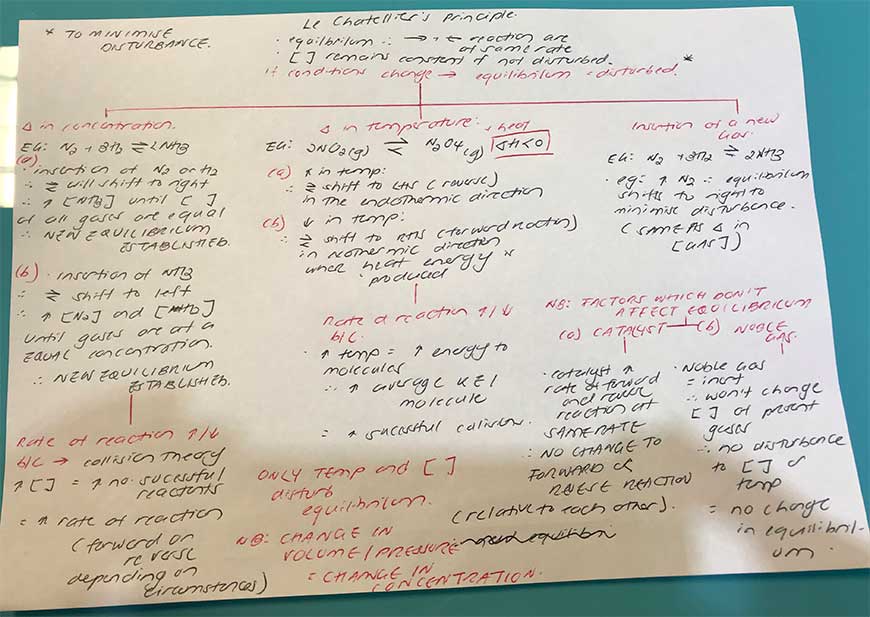 Le Chatellier's Principle.
* TO MINIMISE
DISTURBANCE.
· equilbrium ∴ → + ← reaction are
at same rate
· [ ] remains constant if not disturbed. *
if conditions change → equilibrium = disturbed.
Δ in concentration.
EG: N2 + 3H2 ⇌ 2NH3
(a)
· insertion of N2 or H2
∴ ⇌ will shift to right
∴ ↑ [NH3] until [ ]
of all gases are equal
∴ NEW EQUILIBRIUM
ESTABLISHED.
(b) · insertion of NH3
∴ ⇌ shift to left
∴ ↑ [N2] and [H2]
until gases are at a
EQUAL concentration.
∴ NEW EQUILIBRIUM
ESTABLISHED.
Rate of reaction ↑/↓
b/c → collision theory
↑ [ ] = ↑ no. sucessful
reactants
= ↑ rate of reaction
(forward or
reverse
depending on
circumstances)
Δ in temperature:
+ heat
EG: 2NO2(g) ⇌ N2O4(g) ΔH<0
(a) ↑ in temp:
∴ ⇌ shift to LHS (reverse)
in the endothermic direction
(b) ↓ in temp:
∴ ⇌ shift to RHS (forward reaction)
in exothermic direction
where heat energy is
produced
Rate of reaction ↑/↓
b/c.
· ↑ temp = ↑ energy to
molecules
∴ ↑ average KE /
molecule
= ↑ sucessful collisions.
ONLY TEMP and [ ]
disturb
equilibrium.
NB: CHANGE IN
VOLUME/PRESSURE
= CHANGE IN
CONCENTRATION.
Insertion of a new
Gas.
EG: N2 + 3H2 ⇌ 2NH3
· eg: ↑ N2 ∴ equilibrium
shifts to right to
minimise disturbance.
(SAME AS Δ in
[GAS])
NB: FACTORS WHICH DON'T
AFFECT EQUILIBRIUM
(a) CATALYST (b) NOBLE
GAS.
· catalyst ↑
rate of forward
and reverse
reaction at
SAME RATE
∴ NO CHANGE TO
FORWARD &
REVERSE REACTION
(relative to each other).
· Noble Gas
= inert
∴ won't change
[ ] of present
gases
∴ no disturbance
to [ ] or
temp
= no change
in equilibri-
um.